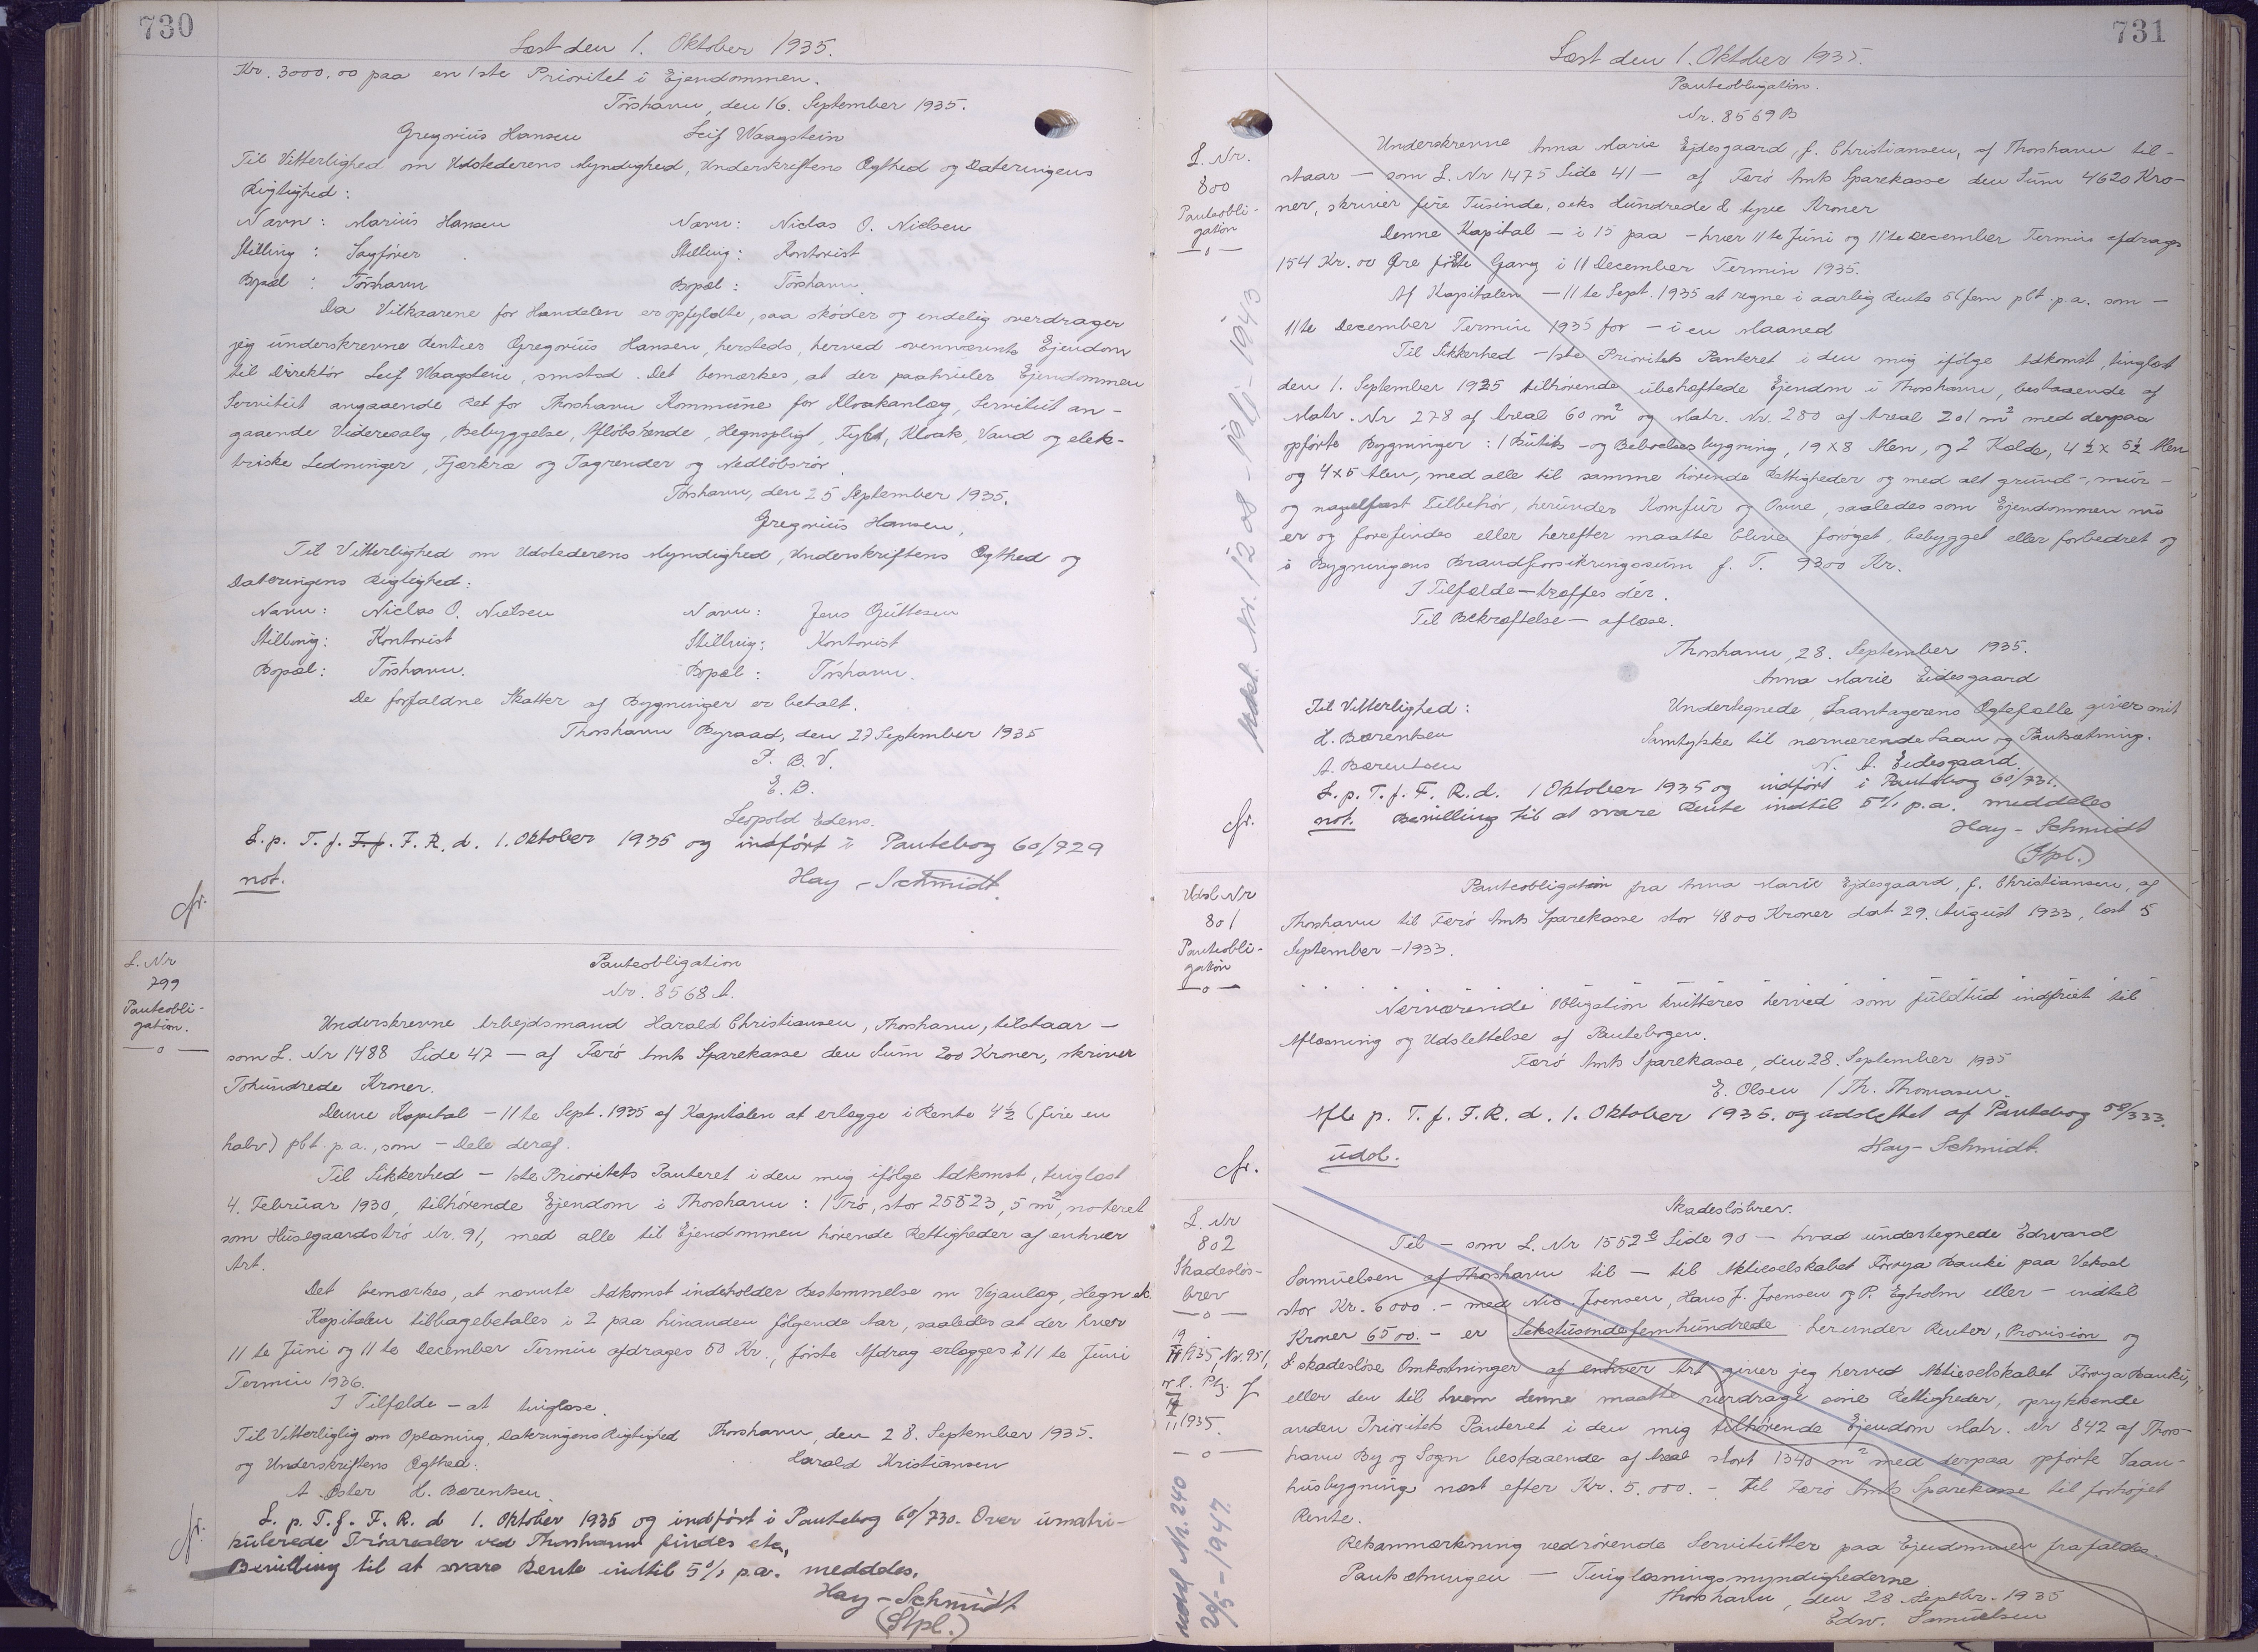 730
Læst den 1. Oktober 1935.
Kr. 3000,00 paa en 1ste Prioritet i Ejendommen.
Tórshavn, den 16. September 1935.
Gregoriús Hansen Leif Waagstein
Til Vitterlighed om Udstederens Myndighed, Underskriftens Ægthed og Dateringens
Rigtighed:
Navn: Mariús Hansen Navn: Niclas O. Nielsen
Stilling: Sagfører Stilling: Kontorist
Bopæl: Tórshavn Bopæl: Tórshavn.
Da Vilkaarene for Handelen er opfyldte, saa skøder og endelig overdrager
jeg únderskrevne Rentier Gregoriús Hansen, hersteds, herved ovennævnte Ejendom
til Direktør Leif Waagstein, smstsd. Det bemærkes, at der paahviler Ejendommen
Servitút angaaende Ret for Thorshavn Kommúne for Kloakanlæg, Servitút an-
gaaende Videresalg, Bebyggelse, Afløbsrende, Hegnspligt, Fyld, Kloak, Vand og elek-
triske Ledninger, Fjerkræ og Tagrender og Nedløbsrør.
Tórshavn, den 25 September 1935.
Gregoriús Hansen.
Til Vitterlighed om Udstederens Myndighed, Underskriftens Ægthed og
Dateringens Rigtighed:
Navn: Niclas O. Nielsen Navn: Jens Gúttesen
Stilling: Kontorist Stilling: Kontorist
Bopæl: Tórshavn. Bopæl: Tórshavn.
De forfaldne Skatter af Bygninger er betalt.
Thorshavn Byraad, den 27 September 1935
P. B. V.
E. B.
Leopold Edens.
L. p. T. f. F. f. F. R. d. 1. Oktober 1935 og indført i Pantebog 60/729
not. Hay-Schmidt.
Cfr.
L. Nr
799
Panteobli-
gation.
—o—
Panteobligation
Nr. 8568 A.
Underskrevne Arbejdsmand Harald Christiansen, Thorshavn, tilstaar —
som L. Nr 1488 Side 47 — af Færø Amts Sparekasse den Súm 200 Kroner, skriver
Tohúndrede Kroner.
Denne Kapital — 11te Sept. 1935 af Kapitalen at erlægge i Rente 4½ (fire en
halv) pCt. p.a., som — Dele deraf.
Til Sikkerhed — 1ste Prioritets Panteret i den mig ifølge Adkomst, tinglæst
4. Febrúar 1930, tilhørende Ejendom i Thorshavn: 1 Trø, stor 25523,5 m², noteret
som Húsegaardstrø Nr. 91, med alle til Ejendommen hørende Rettigheder af enhver
Art.
Det bemærkes, at nævnte Adkomst indeholder Bestemmelse om Vejanlæg, Hegn etc.
Kapitalen tilbagebetales i 2 paa hinanden følgende Aar, saaledes at der hver
11te Júni og 11te December Termin afdrages 50 Kr., første Afdrag erlægges i 11te Júni
Termin 1936.
I Tilfælde — at tinglæse.
Til Vitterliglig om Oplæsning, Dateringens Rigtighed Thorshavn, den 28. September 1935.
og Underskriftens Ægthed: Harald Kristiansen
A. Øster H. Bærentsen.
L. p. T. f. F. R. d 1. Oktober 1935 og indført i Pantebog 60/730. Over úmatri-
kúlerede Trøarealer ved Thorshavn findes etc.,
Bevilling til at svare Rente indtil 5% p.a. meddeles.
Hay-Schmidt
(Stpl.)
Cfr.
731
Læst den 1. Oktober 1935.
L. Nr.
800
Panteobli-
gation
—o—
Panteobligation.
Nr. 8569 B
Underskrevne Anna Marie Ejdesgaard, f. Christiansen, af Thorshavn til-
staar — som L. Nr 1475 Side 41 — af Færø Amts Sparekasse den Súm 4620 Kro-
ner, skriver fire Túsinde, seks Húndrede & tyve Kroner
Denne Kapital — i 15 paa — hver 11te Júni og 11te December Termin afdrages
154 Kr. 00 Øre første Gang i 11 December Termin 1935.
Af Kapitalen — 11te Sept. 1935 at regne i aarlig Rente 5 (fem pCt. p.a. som —
11te December Termin 1935 for — i en Maaned
Til Sikkerhed — 1ste Prioritets Panteret i den mig ifølge Adkomst, tinglæst
den 1. September 1925 tilhørende úbehæftede Ejendom i Thorshavn, bestaaende af
Matr. Nr 278 af Areal 60 m² og Matr. Nr. 280 af Areal 201 m² med derpaa
opførte Bygninger: 1 Bútiks- og Beboelsesbygning, 19 x 8 Alen, og 2 Kælde, 4½ x 5½ Alen
og 4 x 5 Alen, med alle til samme hørende Rettigheder og med alt grúnd-, múr-
og nagelfast Tilbehør, herúnder Komfúr og Ovne, saaledes som Ejendommen nú
er og forefindes eller herefter maatte blive forøget, bebygget eller forbedret og
i Bygningens Brandforsikringssúm f. T. 9300 Kr.
I Tilfælde — træffes dér.
Til Bekræftelse — aflæse.
Thorshavn, 28. September 1935.
Anna Marie Eidesgaard
Til Vitterlighed: Undertegnede, Laantagerens Ægtefælle giver mit
H. Bærentsen Samtykke til nærværende Laan og Pantsætning.
A. Bærentsen N. A. Eidesgaard.
L. p. T. f. F. R. d. 1 Oktober 1935 og indført i Pantebog 60/731.
not. Bevilling til at svare Rente indtil 5% p.a. meddeles
Hay-Schmidt
(Stpl.)
Cfr.
Udsl. Nr. 1208 - 19/11-1943
Udsl. Nr
801
Panteobli-
gation
—o—
Panteobligation fra Anna Marie Ejdesgaard, f. Christiansen, af
Thorshavn til Færø Amts Sparekasse stor 4800 Kroner dat 29. Aúgúst 1933, læst 5
September - 1933.
Nærværende Obligation kvitteres herved som fúldtúd indfriet til
Aflæsning og Udslettelse af Pantebogen.
Færø Amts Sparekasse, den 28. September 1935
E. Olsen / Th. Thomasen.
Afl. p. T. f. F. R. d. 1. Oktober 1935. og údslettet af Pantebog 58/333.
údsl. Hay-Schmidt.
Cfr.
L. Nr
802
Skadesløs-
brev
—o—
Skadesløsbrev.
Til — som L. Nr 1552 Side 90 — hvad úndertegnede Edward
Samúelsen af Thorshavn til — til Aktieselskabet Føroya Banki paa Veksel
stor Kr. 6000.- med Nic. Joensen, Hans J. Joensen og P. Egholm eller — indtil
Kroner 6500.- er Sekstúsindefemhúndrede herúnder Renter, Provision og
skadesløse Omkostninger af enhver Art giver jeg herved Aktieselskabet Føroya Banki,
eller den til hvem denne maatte overdrage sine Rettigheder, oprykkende
anden Prioritets Panteret i den mig tilhørende Ejendom Matr. Nr 842 af Thors-
havn By og Sogn bestaaende af Areal stort 1340 m² med derpaa opførte Vaan-
húsbygning næst efter Kr. 5.000.- til Færø Amts Sparekasse til forhøjet
Rente.
Retsanmærkning vedrørende Servitútter paa Ejendommen frafaldes.
Pantsætningen — Tinglæsningsmyndighederne
Thorshavn, den 28. Septbr. 1935
Edw. Samúelsen
1935, Nr. 951,
1935.
—o—
Udsl Nr. 240
20/5-1947.